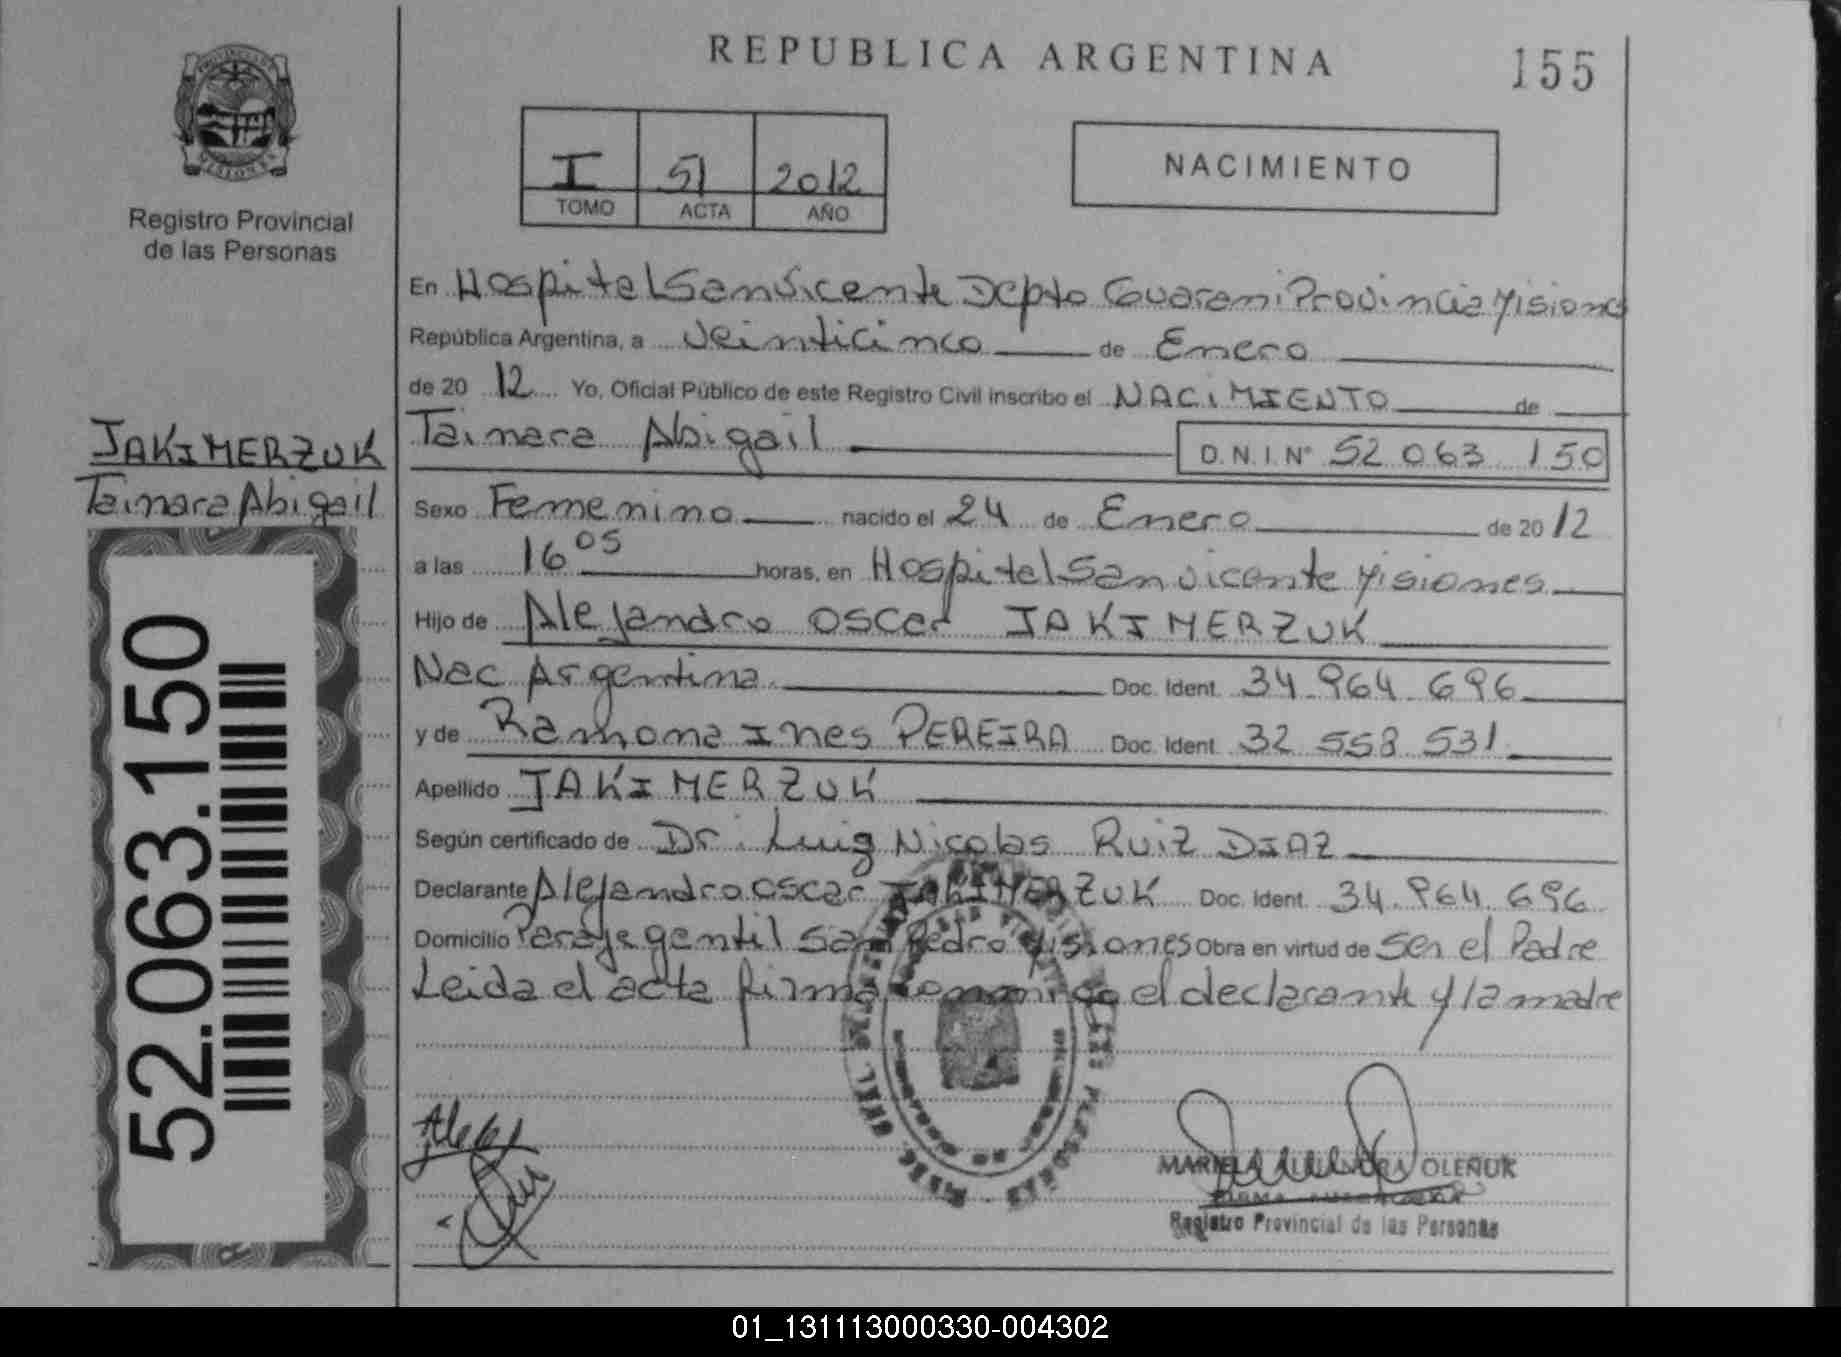 REPUBLICA ARGENTINA
155
PROVINCIA DE
MISIONES
Registro Provincial
de las Personas
I 51 2012
TOMO ACTA AÑO
NACIMIENTO
En Hospital San Vicente Depto Guarani Provincia Misiones
República Argentina, a Veinticinco de Enero
de 20 12 Yo, Oficial Público de este Registro Civil inscribo el NACIMIENTO de
Tainara Abigail D.N.I.N° 52 063 150
JAKIMERZUK
Tainara Abigail
Sexo Femenino nacido el 24 de Enero de 20 12
a las 16 05 horas, en Hospital San Vicente Misiones
Hijo de Alejandro Oscar JAKIMERZUK
Nac Argentina Doc. Ident. 34.964.696
y de Ramona Ines PEREIRA Doc. Ident. 32 558 531
Apellido JAKIMERZUK
Según certificado de Dr. Luis Nicolas Ruiz DIAZ
Declarante Alejandro Oscar JAKIMERZUK Doc. Ident. 34.964.696
Domicilio Paraje gentil San Pedro Misiones Obra en virtud de Ser el Padre
Leida el acta firma conmigo el declarante y la madre
52.063.150
MARIELA OLEÑUK
Registro Provincial de las Personas
01_131113000330-004302